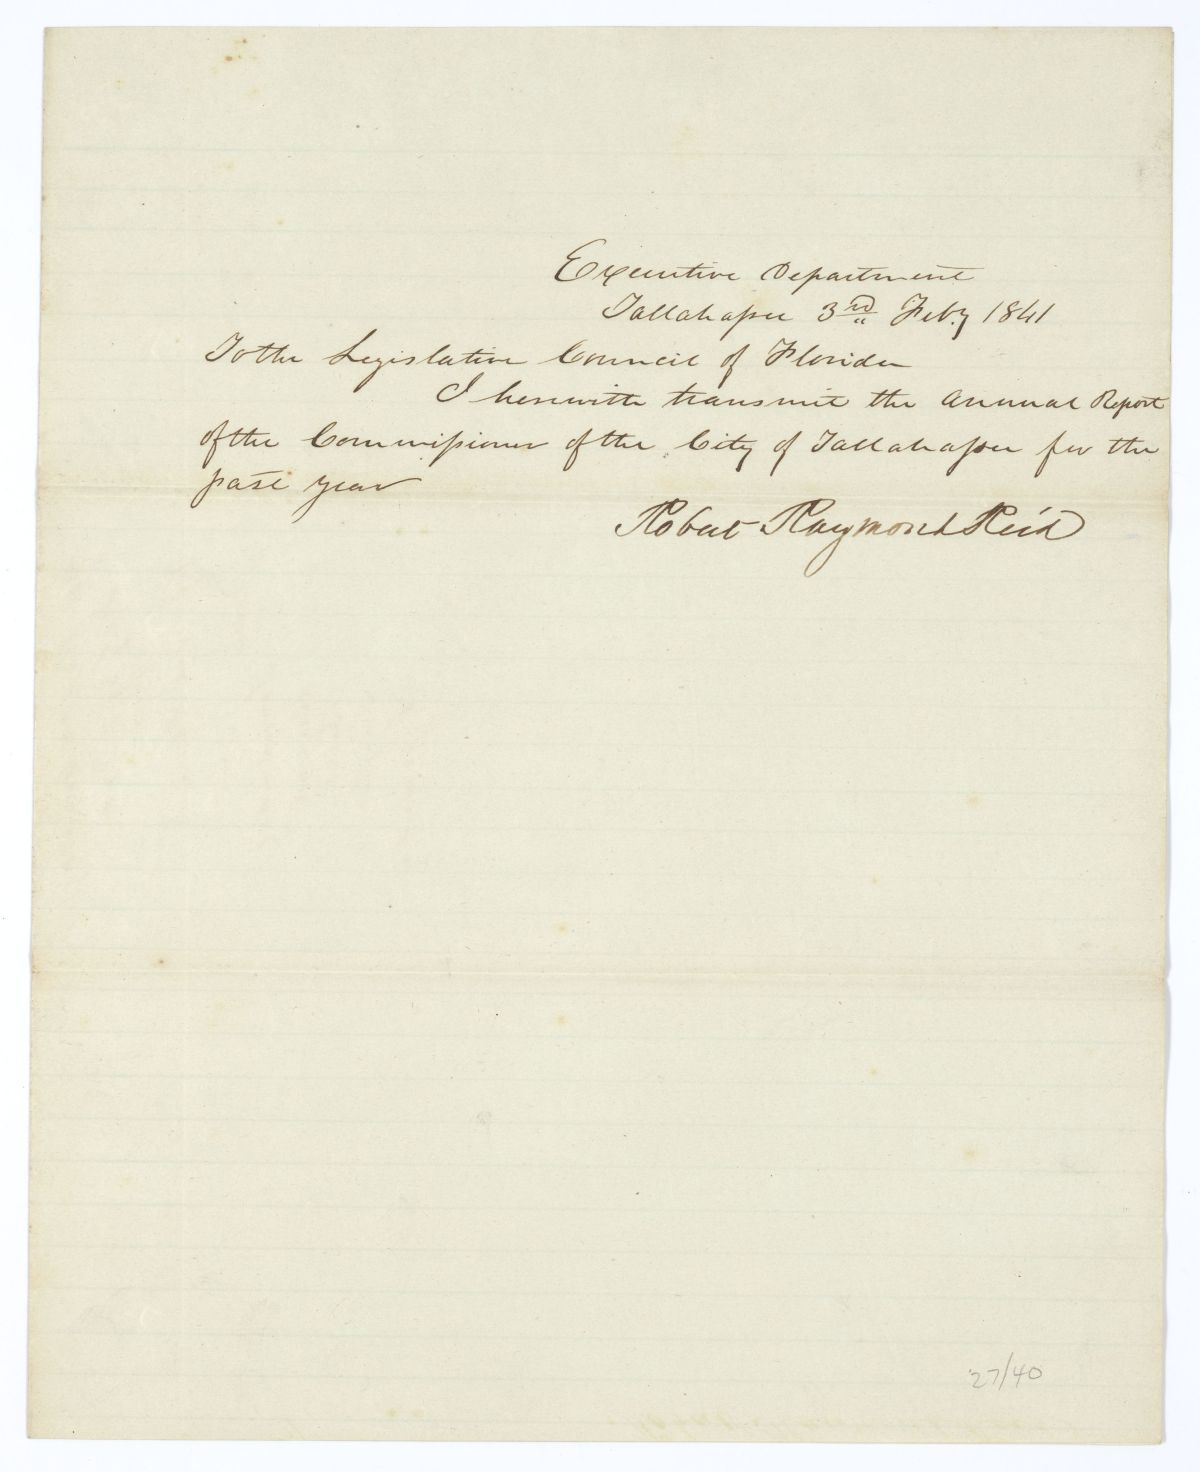 Executive Department
Tallahassee 3rd Feby 1841
To the Legislative Council of Florida
I herewith transmit the Annual Report
of the Commissioner of the City of Tallahassee for the
past year
Robert Raymond Reid
27/40